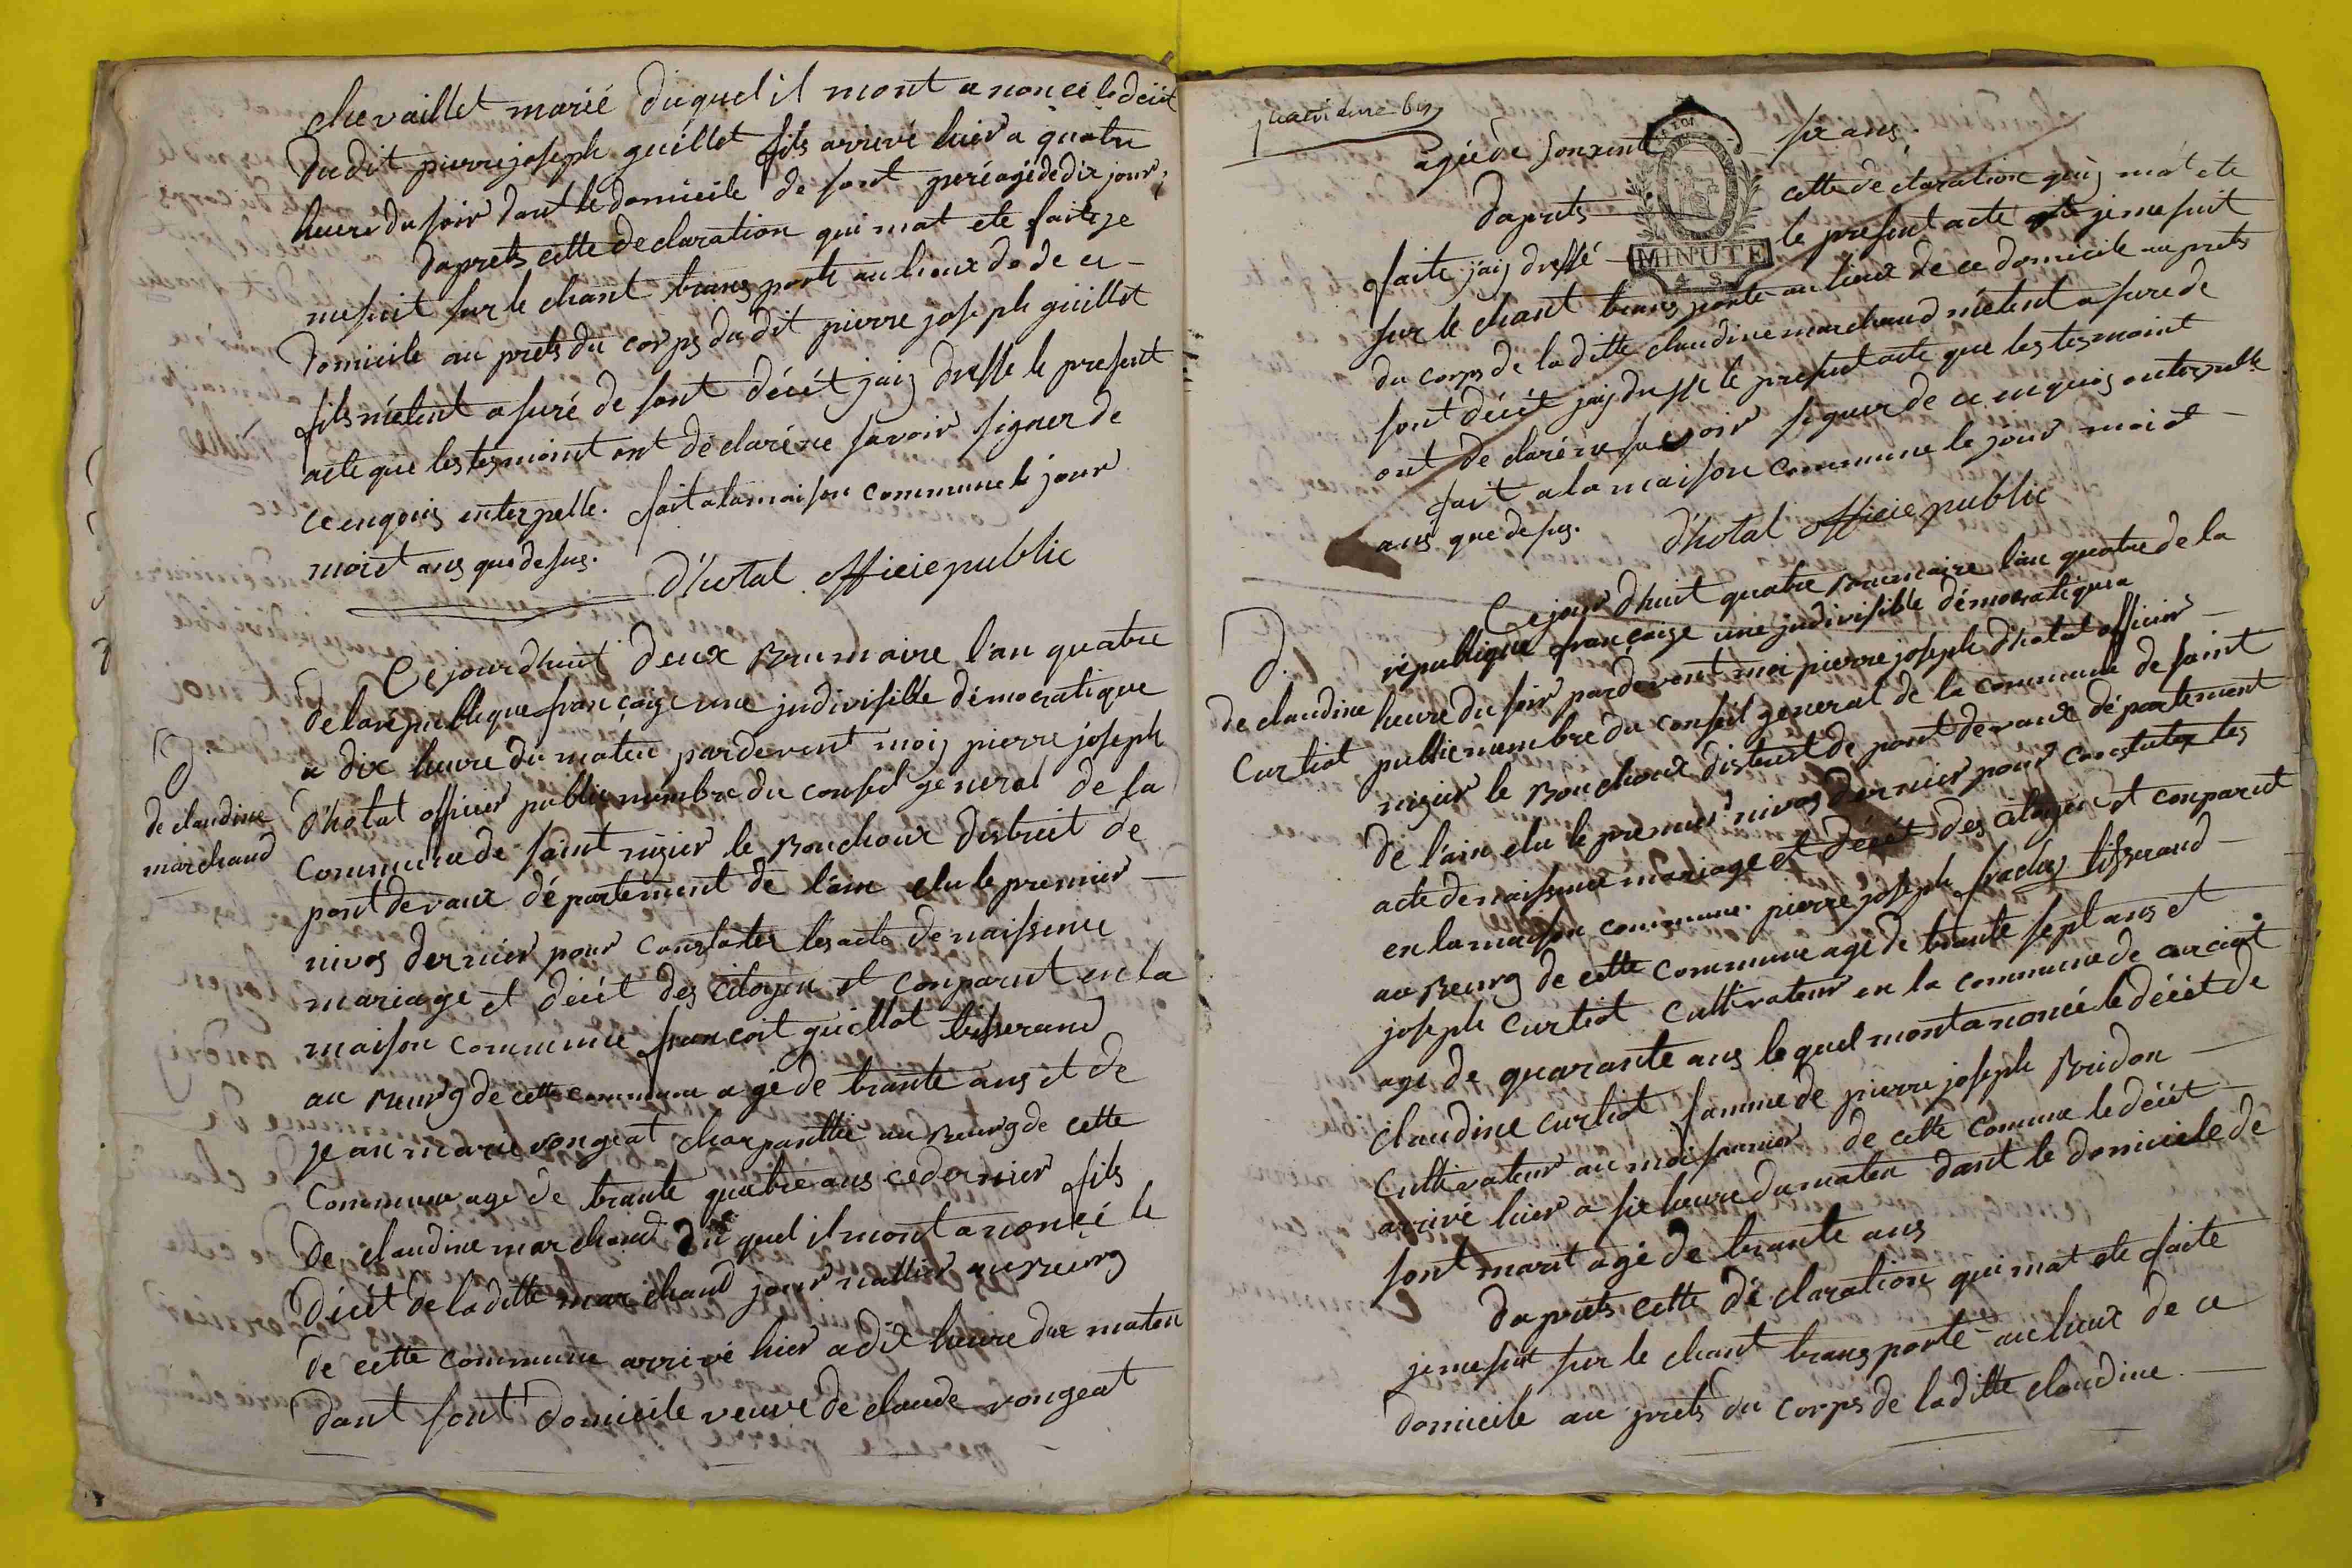 chevaillet marié duquel il mont anoncé le décét
dudit pierre joseph guillet fils arrivé hier a quatre
heure du soir dant le domicile de sont peré agé de dix jour,
daprets cette declaration qui mat ete faite je
me suit sur le chant transporté au lieux de de ce
domicile au prets du corps dudit pierre joseph guillet
fils métent asuré de sont décét jaiz dressé le present
acte que les tesmoint ont déclaré ne savoir signer de
ce enquis enterpellé. fait a la maison commune le jour
moi et ans que desus.
d'hotal officié public
Ce jourdhuit deux Brumaire l'an quatre
de la republique françaige une judivisible démocratique
a dix heure du maten pardevent moiz pierre joseph
D.
de claudine
marchaud
d'hotal officier public membre du conseil general de la
Commune de saint nizier le Bouchoux district de
pont devaux département de l'ain elu le premier
nivos dernier pour constater les acte de naissence
mariage et décét des citoyen et conparut en la
maison commune francoit guillot tisserand
au Beurg de cette commune agé de trante ans et de
jean marie rongeat charpanttié au Beurg de cette
Commune agé de trante quatre ans ce dernier fils
de claudine marchaud duquel il mont anoncé le
décét de laditte marchaud journallier au Beurg
de cette commune arrivé hier a dix heure du maten
dant sont domicile veuve de claude rongeat
quatrieme
agéé de sonxent six ans.
MINUTE
4 S
daprets cette declaration quiz mat ete
faite jaiz dressé le present acte je me suit
sur le chant transporté au lieux de ce domicile au prets
du corps de laditte claudine marchaud métent asuré de
sont décét jaiz dressé le present acte que les tesmoint
ont declaré ne savoir signer de ce enquis enterpellé
fait a la maison commune le jour moi et
ans que desus.
d'hotal officié public
Ce jourdhuit quatre Brumaire l'an quatre de la
republique françaige une judivisible démocratique a
D.
de claudine
Curtiat
heure du soir pardevent moi pierre joseph d'hotal officier
public membre du conseil general de la commune de saint
nizier le Bouchoux district de pont devaux département
de l'ain elu le premier nivos dernier pour constater les
acte de naissence mariage et décét des citoyen et conparut
en la maison commune. pierre joseph tisserand
au Beurg de cette commune agé de trante sept ans et
joseph Curtiat Cultivateur en la commune de curciat
agé de quarante ans lequel mont anoncé le décét de
claudine Curtiat famme de pierre joseph Bridon
Cultivateur au de cette comune le décét
arrivé hier a six heure du maten dant le domicile de
sont marit agé de trante ans
daprets cette déclaration qui mat ete faite
je me suit sur le chant transporté au lieux de ce
domicile au prets du corps de laditte claudine